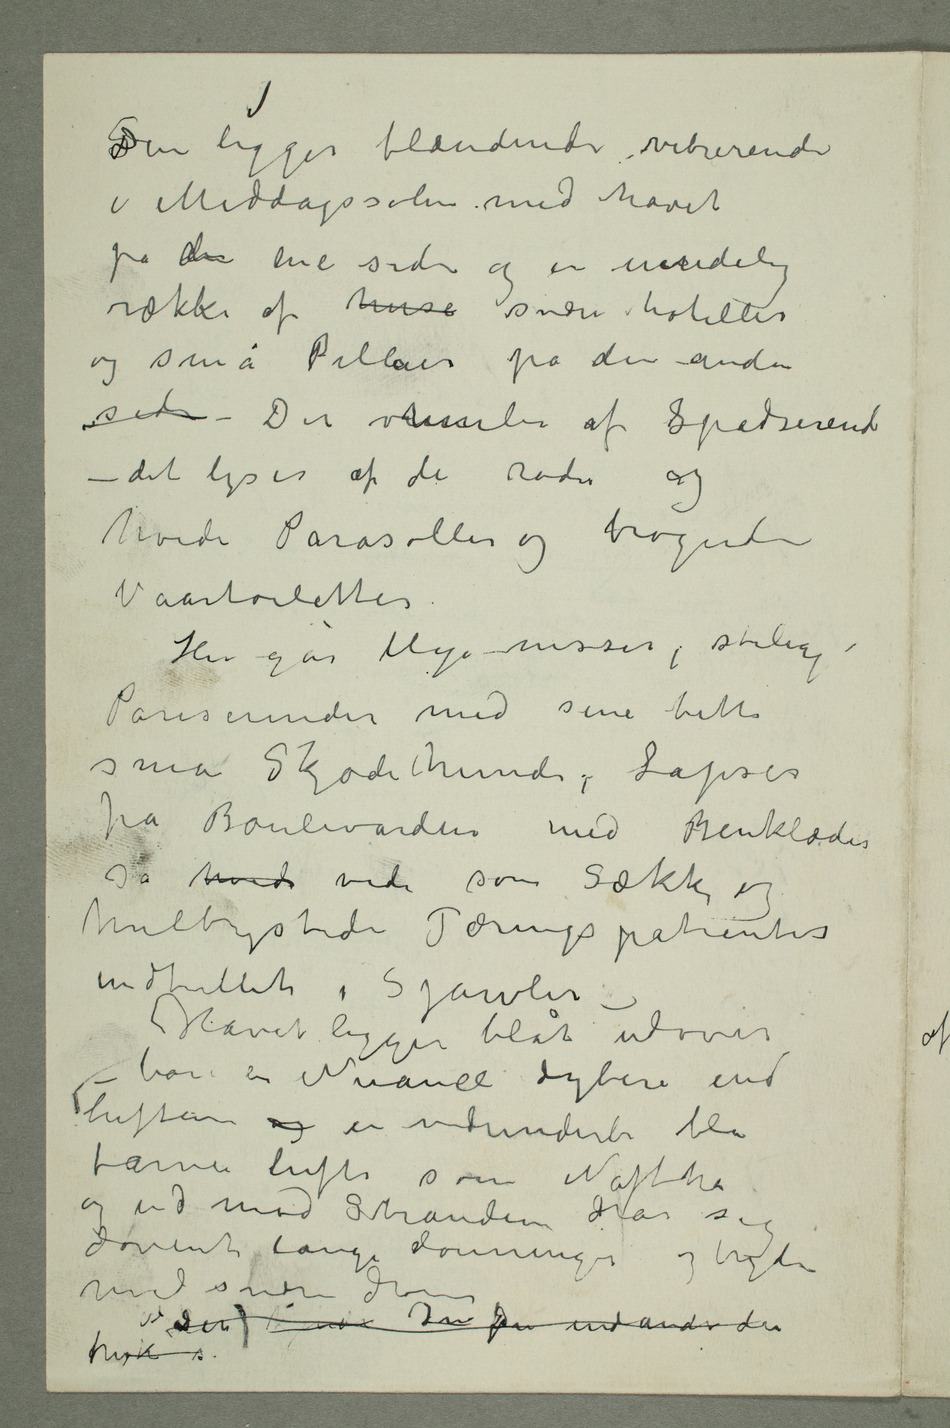 Den ligger blændende vibrerende
i Middagssolen med havet
på den ene side og en uendelig
række af huse svære hoteller
og små Villaer på den anden
side – Der vrimler af Spadserende
– det lyser af de røde og
hvide Parasoller og brogede
Vaartoiletter.
Her går Uge-misser, stilige
Pariserinder med sine bitte
små Skjødehunde, Lapser
fra Boulevarden med Benklæder
så hvide vide som Sække og
hulbrystede Tæringspatienter
indtullet i Sjawler –
Havet ligger blåt udover
– bare en Nuance dybere end
luften og en vidunderlig blå
farve luftig som Naftha
og ind mod Stranden drar sig
dovent lange dønninger og bryder
med svære drøn
Den